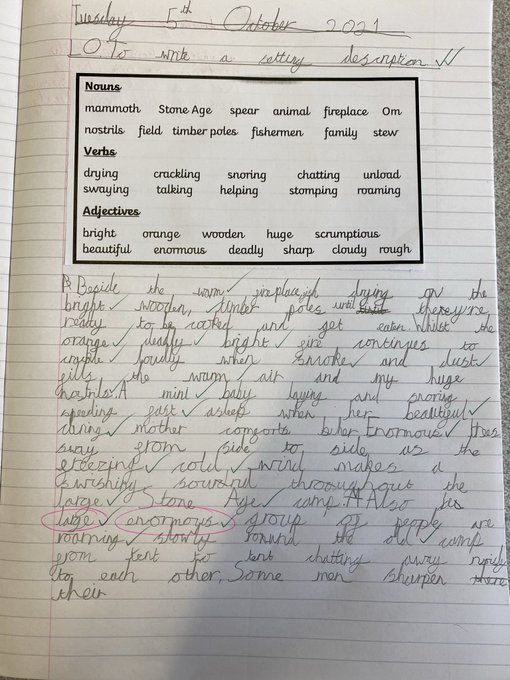 Tuesday 5th October 2021
L.O. To write a setting description
Nouns
mammoth Stone Age spear animal fireplace Om
nostrils field timber poles fishermen family stew
Verbs
drying crackling snoring chatting unload
swaying talking helping stomping roaming
Adjectives
bright orange wooden huge scrumptious
beautiful enormous deadly sharp cloudy rough
Beside the warm fireplace, fish drying on the
bright wooden, timber poles until they're,
ready to be cooked and get eaten. Whilst the
orange deadly bright fire continues to
crackle loudly when smoke and dust
fills the warm air and my huge
nostrils. A mini baby laying and snoring
speeding fast asleep when her beautiful
caring mother comforts her. Enormous trees
sway from side to side as the
freezing cold wind makes a
swishing sound throughout the
large Stone Age camp. Also
large enormous group of people are
roaming slowly round the old camp
from tent to tent chatting away
to each other, Some men sharpen there
their